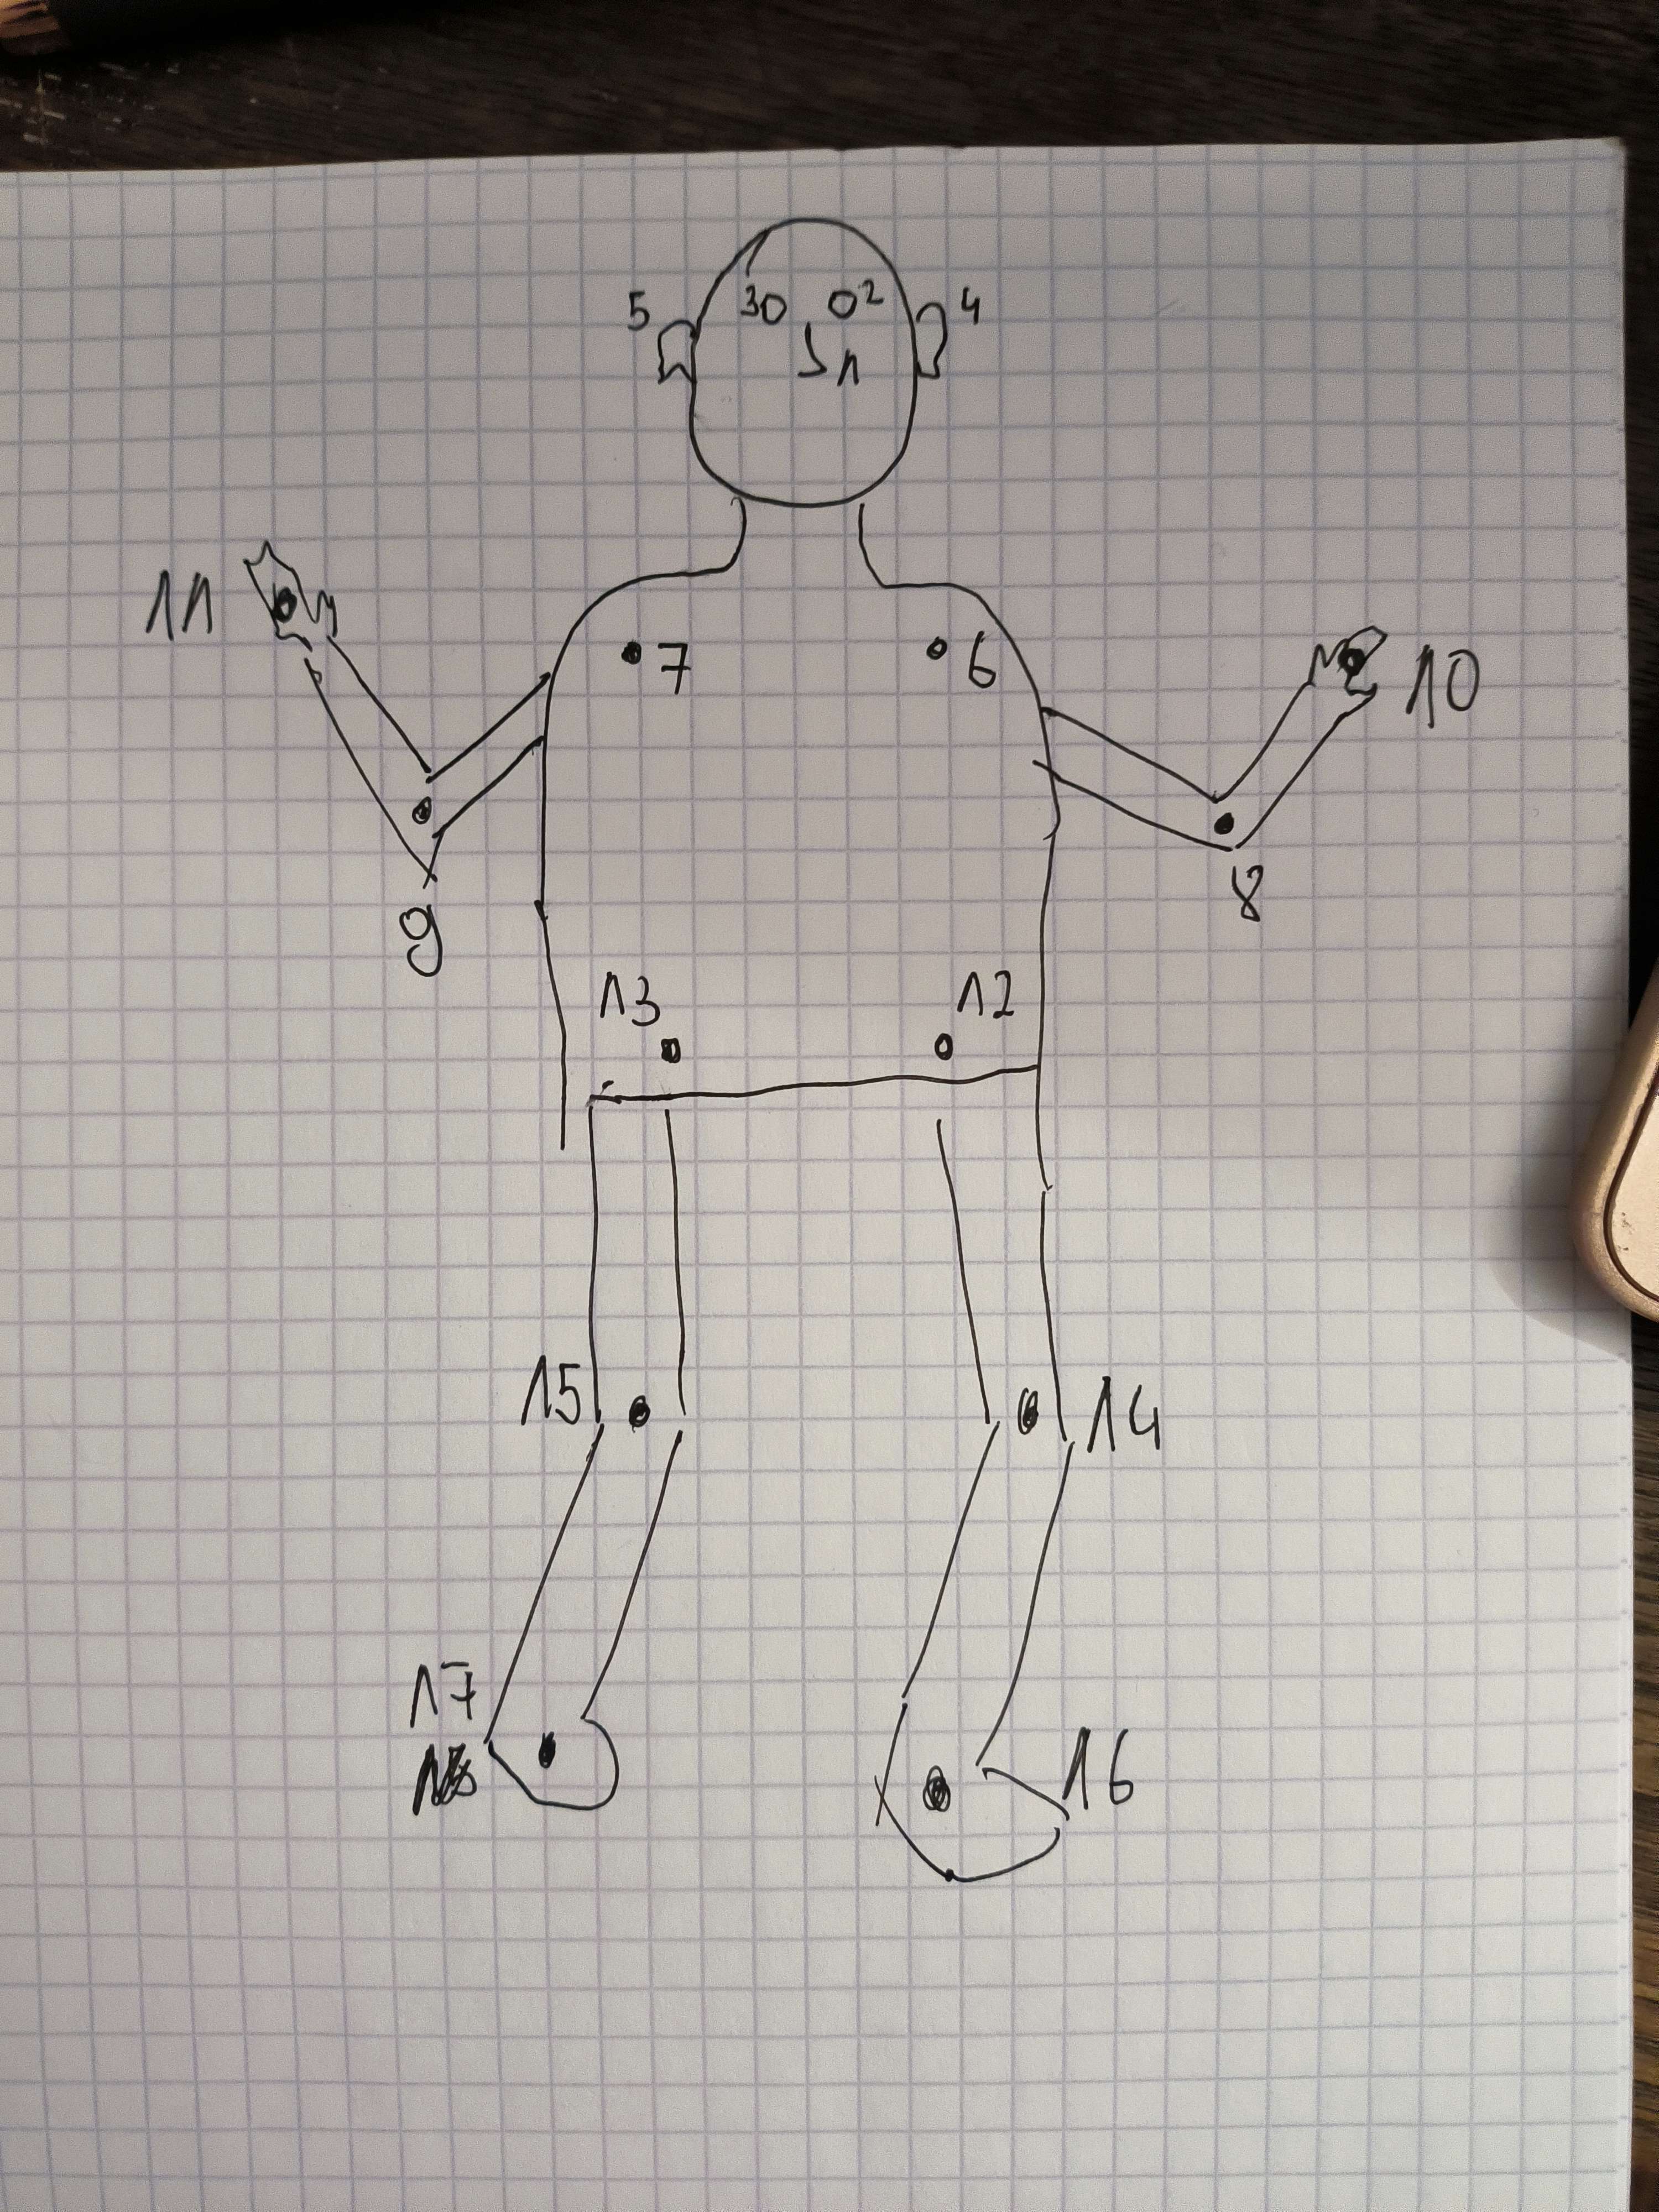 5 3 2 4
1
11 7 6 10
9 8
13 12
15 14
17 16